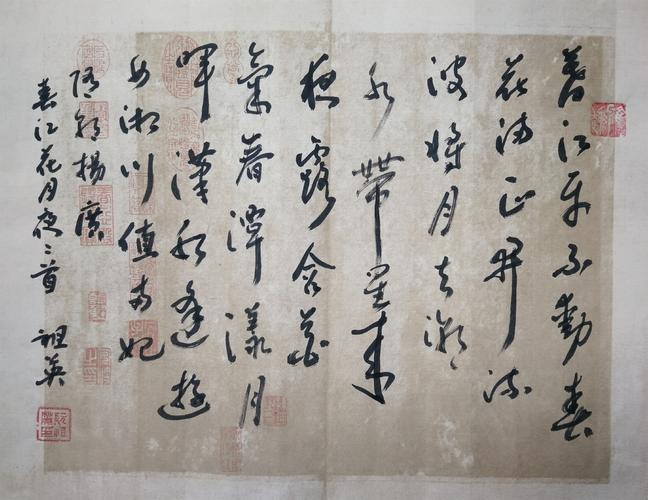 暮江平不動春
花滿正開流
波將月去潮
水帶星來
夜露含花
氣春潭漾月
暉漢水逢遊
女湘川值兩妃
隋朝楊廣
春江花月夜二首 祖英